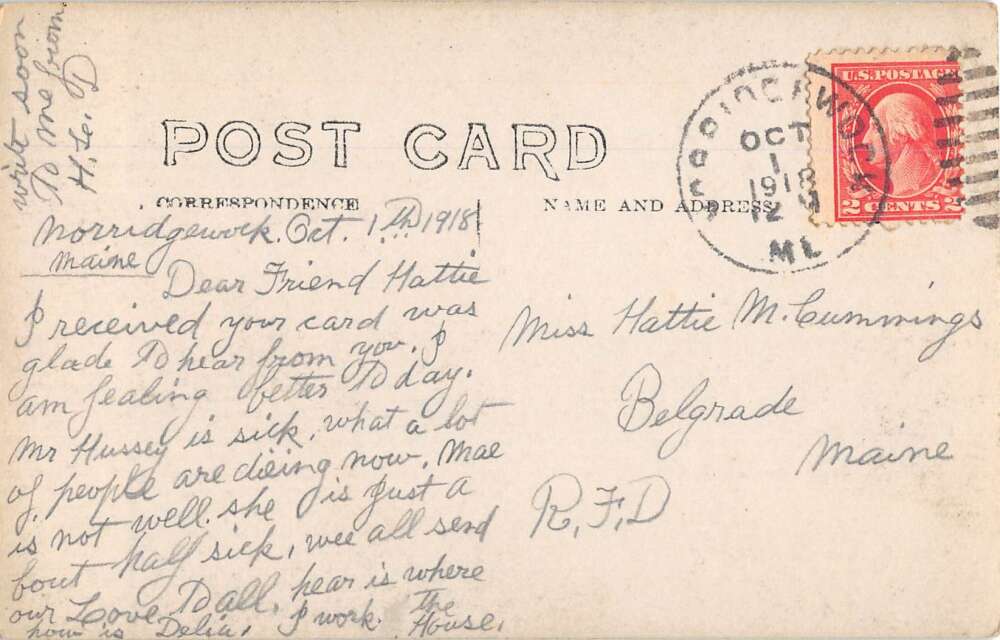 write soon
To me from
H. Le. D
POST CARD
CORRESPONDENCE
NAME AND ADDRESS
NORRIDGEWOCK
OCT
1
1918
12 M
U.S. POSTAGE
2 CENTS 2
Norridgewock. Oct. 1 Th 1918
Maine
Dear Friend Hattie
I received your card was
glade To hear from you. I
am fealing better To day.
Mr Hussey is sick, what a lot
of people are dieing now. Mae
is not well. she is just a
bout half sick, wee all send
our Love To all. hear is where
how is Delia, I work. The House,
Miss Hattie M. Cummings
Belgrade
Maine
R.F.D